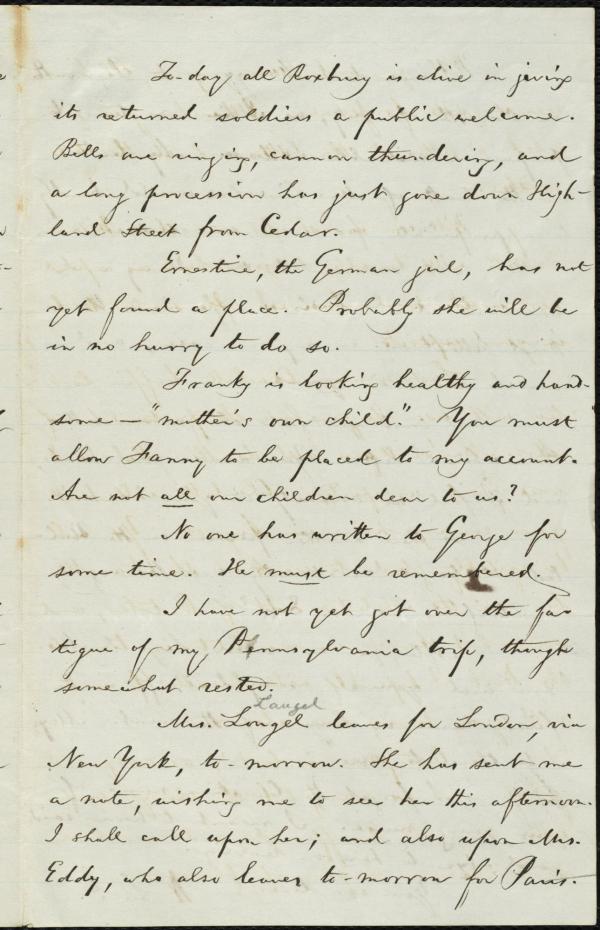 To-day all Roxbury is alive in giving
its returned soldiers a public welcome.
Bells are ringing, cannon thundering, and
a long procession has just gone down High-
land Street from Cedar.
Ernestine, the German girl, has not
yet found a place. Probably she will be
in no hurry to do so.
Franky is looking healthy and hand-
some — "mother's own child." You must
allow Fanny to be placed to my account.
Are not all our children dear to us?
No one has written to George for
some time. He must be remembered.
I have not yet got over the fa-
tigue of my Pennsylvania trip, though
somewhat rested.
Laugel
Mrs. Longel leaves for London, via
New York, to-morrow. She has sent me
a note, wishing me to see her this afternoon.
I shall call upon her; and also upon Mrs.
Eddy, who also leaves to-morrow for Paris.